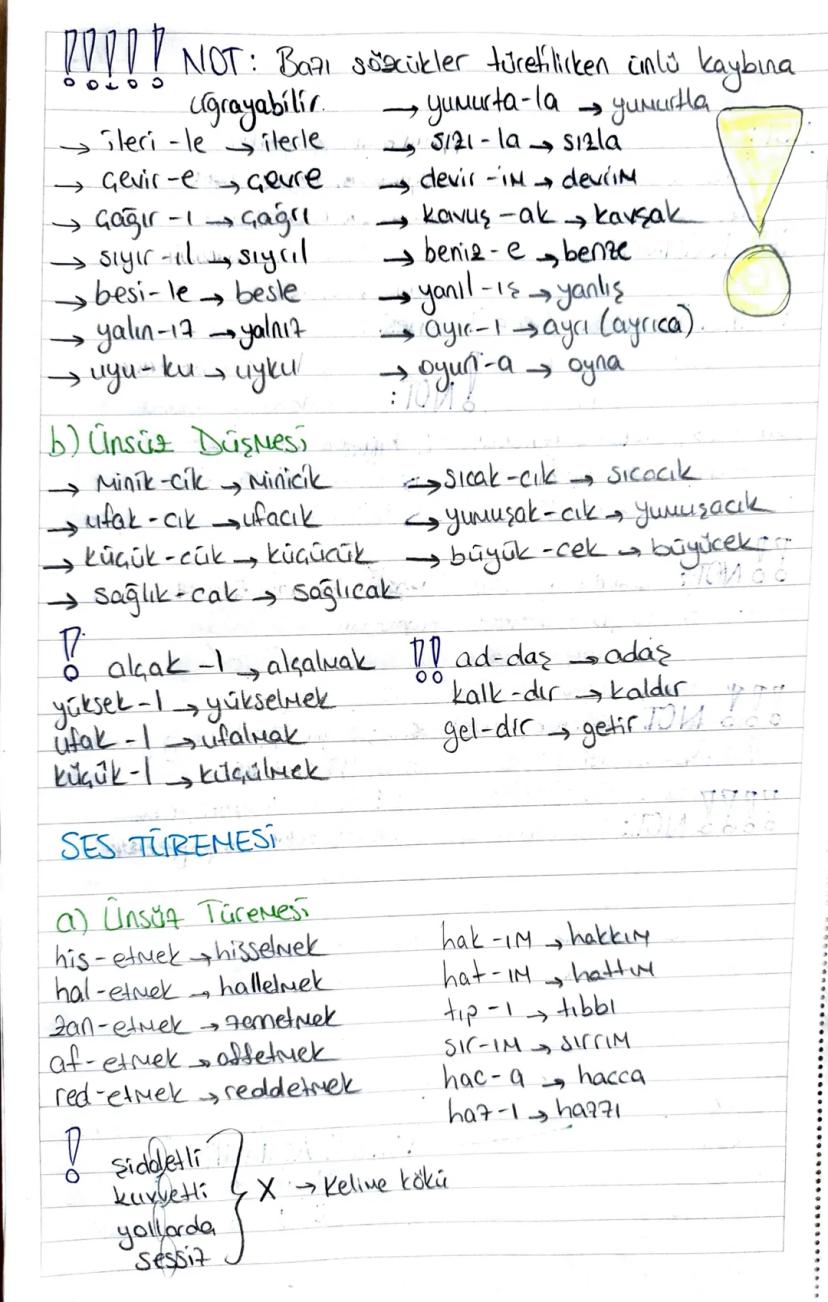 !!!!! NOT: Bazı sözcükler türetilirken ünlü kaybına
uğrayabilir.
→ ileri -le → ilerle
→ çevir -e → çevre
→ çağır -ı → çağrı
→ sıyır -ıl → sıyrıl
→ besi-le → besle
→ yalın-ız → yalnız
→ uyu-ku → uyku
→ yumurta-la → yumurtla
→ sızı-la → sızla
→ devir -im → devrim
→ kavuş -ak → kavşak
→ beniz-e → benze
→ yanıl-ış → yanlış
→ ayır-ı → ayrı (ayrıca)
→ oyun-a → oyna
b) Ünsüz Düşmesi
→ Minik-cik → Minicik
→ ufak-cık → ufacık
→ küçük-cük → küçücük
→ sağlık-cak → sağlıcak
→ sıcak-cık → sıcacık
→ yumuşak-cık → yumuşacık
→ büyük-cek → büyücek
! alçak -l → alçalmak
yüksek-l → yükselmek
ufak -l → ufalmak
küçük-l → küçülmek
!! ad-daş → adaş
kalk-dır → kaldır
gel-dir → getir
SES TÜREMESİ
a) Ünsüz Türemesi
his-etmek → hissetmek
hal-etmek → halletmek
zan-etmek → zennetmek
af-etmek → affetmek
red-etmek → reddetmek
hak -ım → hakkım
hat-ım → hattım
tıp-ı → tıbbı
sır-ım → sırrım
hac-a → hacca
haz-ı → hazzı
! şiddetli
kuvvetli
yollarda
sessiz
X → Kelime kökü